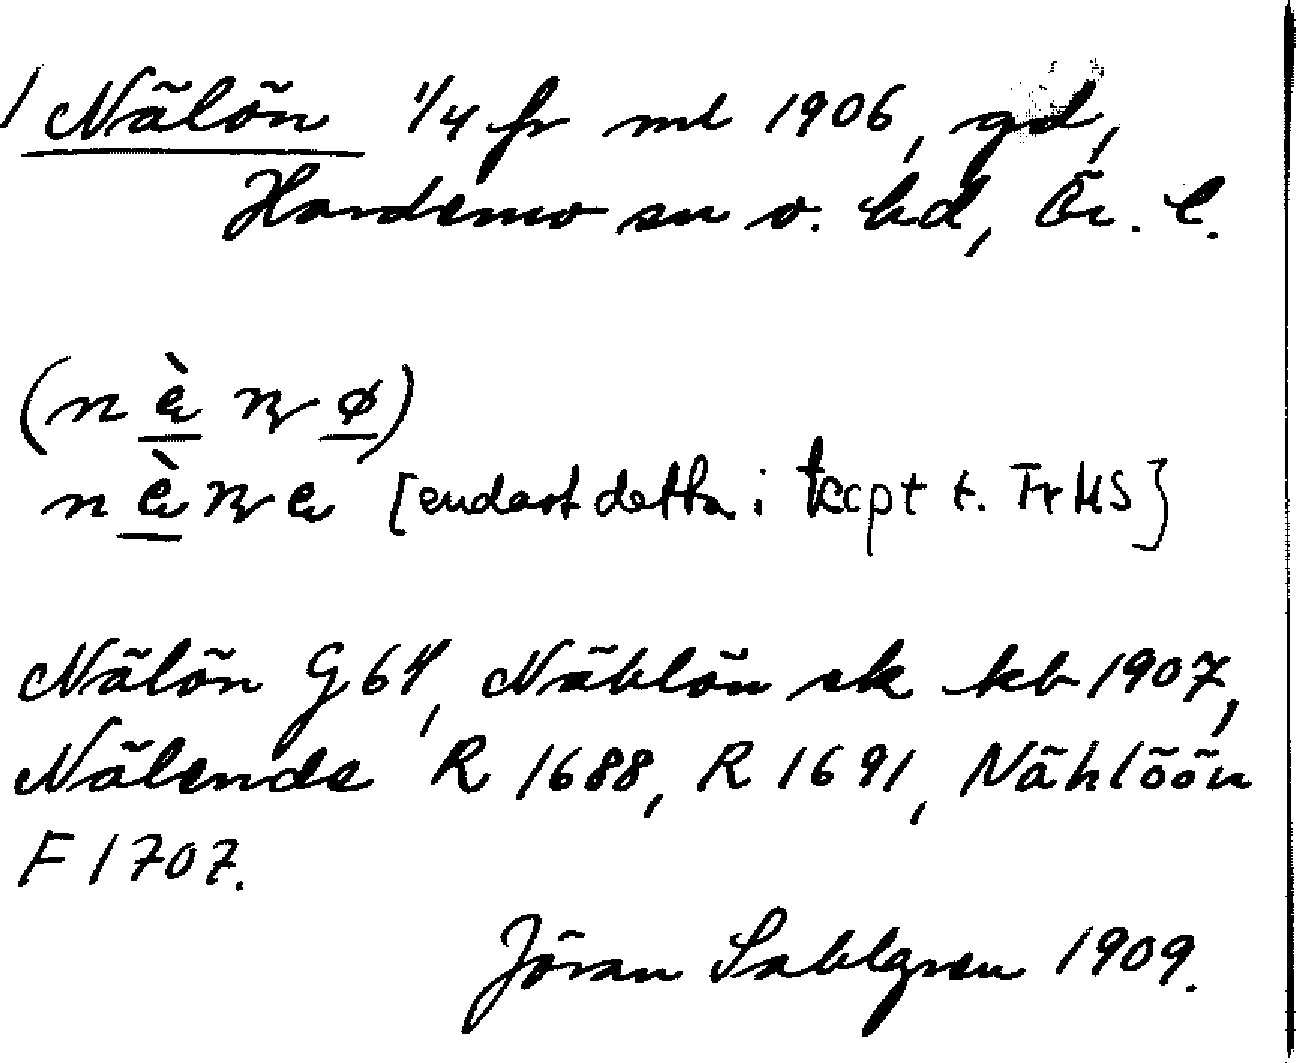 Nälön 1/4 fr ml 1906, gd,
Hardemo sn o. hd, Ör. l.
[endast detta i kcpt t. Fr HS]
Nälön G 64, Nählön sk kb 1907,
Nälende R 1688, R 1691, Nählöön
F 1707.
Jöran Sahlgren 1909.